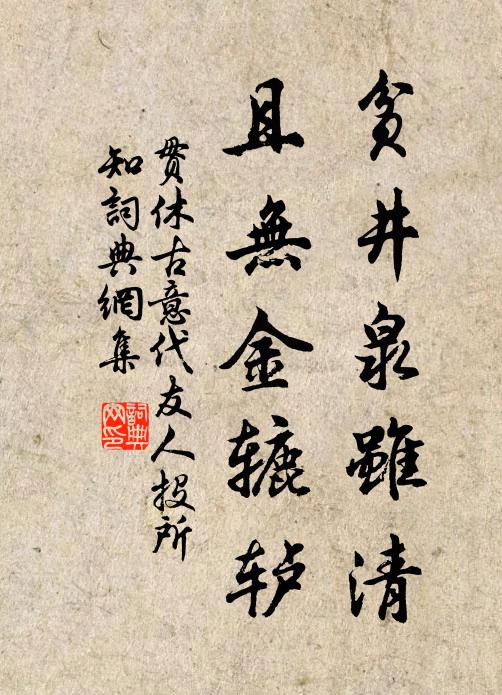 贫井泉雖清
且無金辘轳
贯休古意代友人投所
知詞典網集
詞典網印